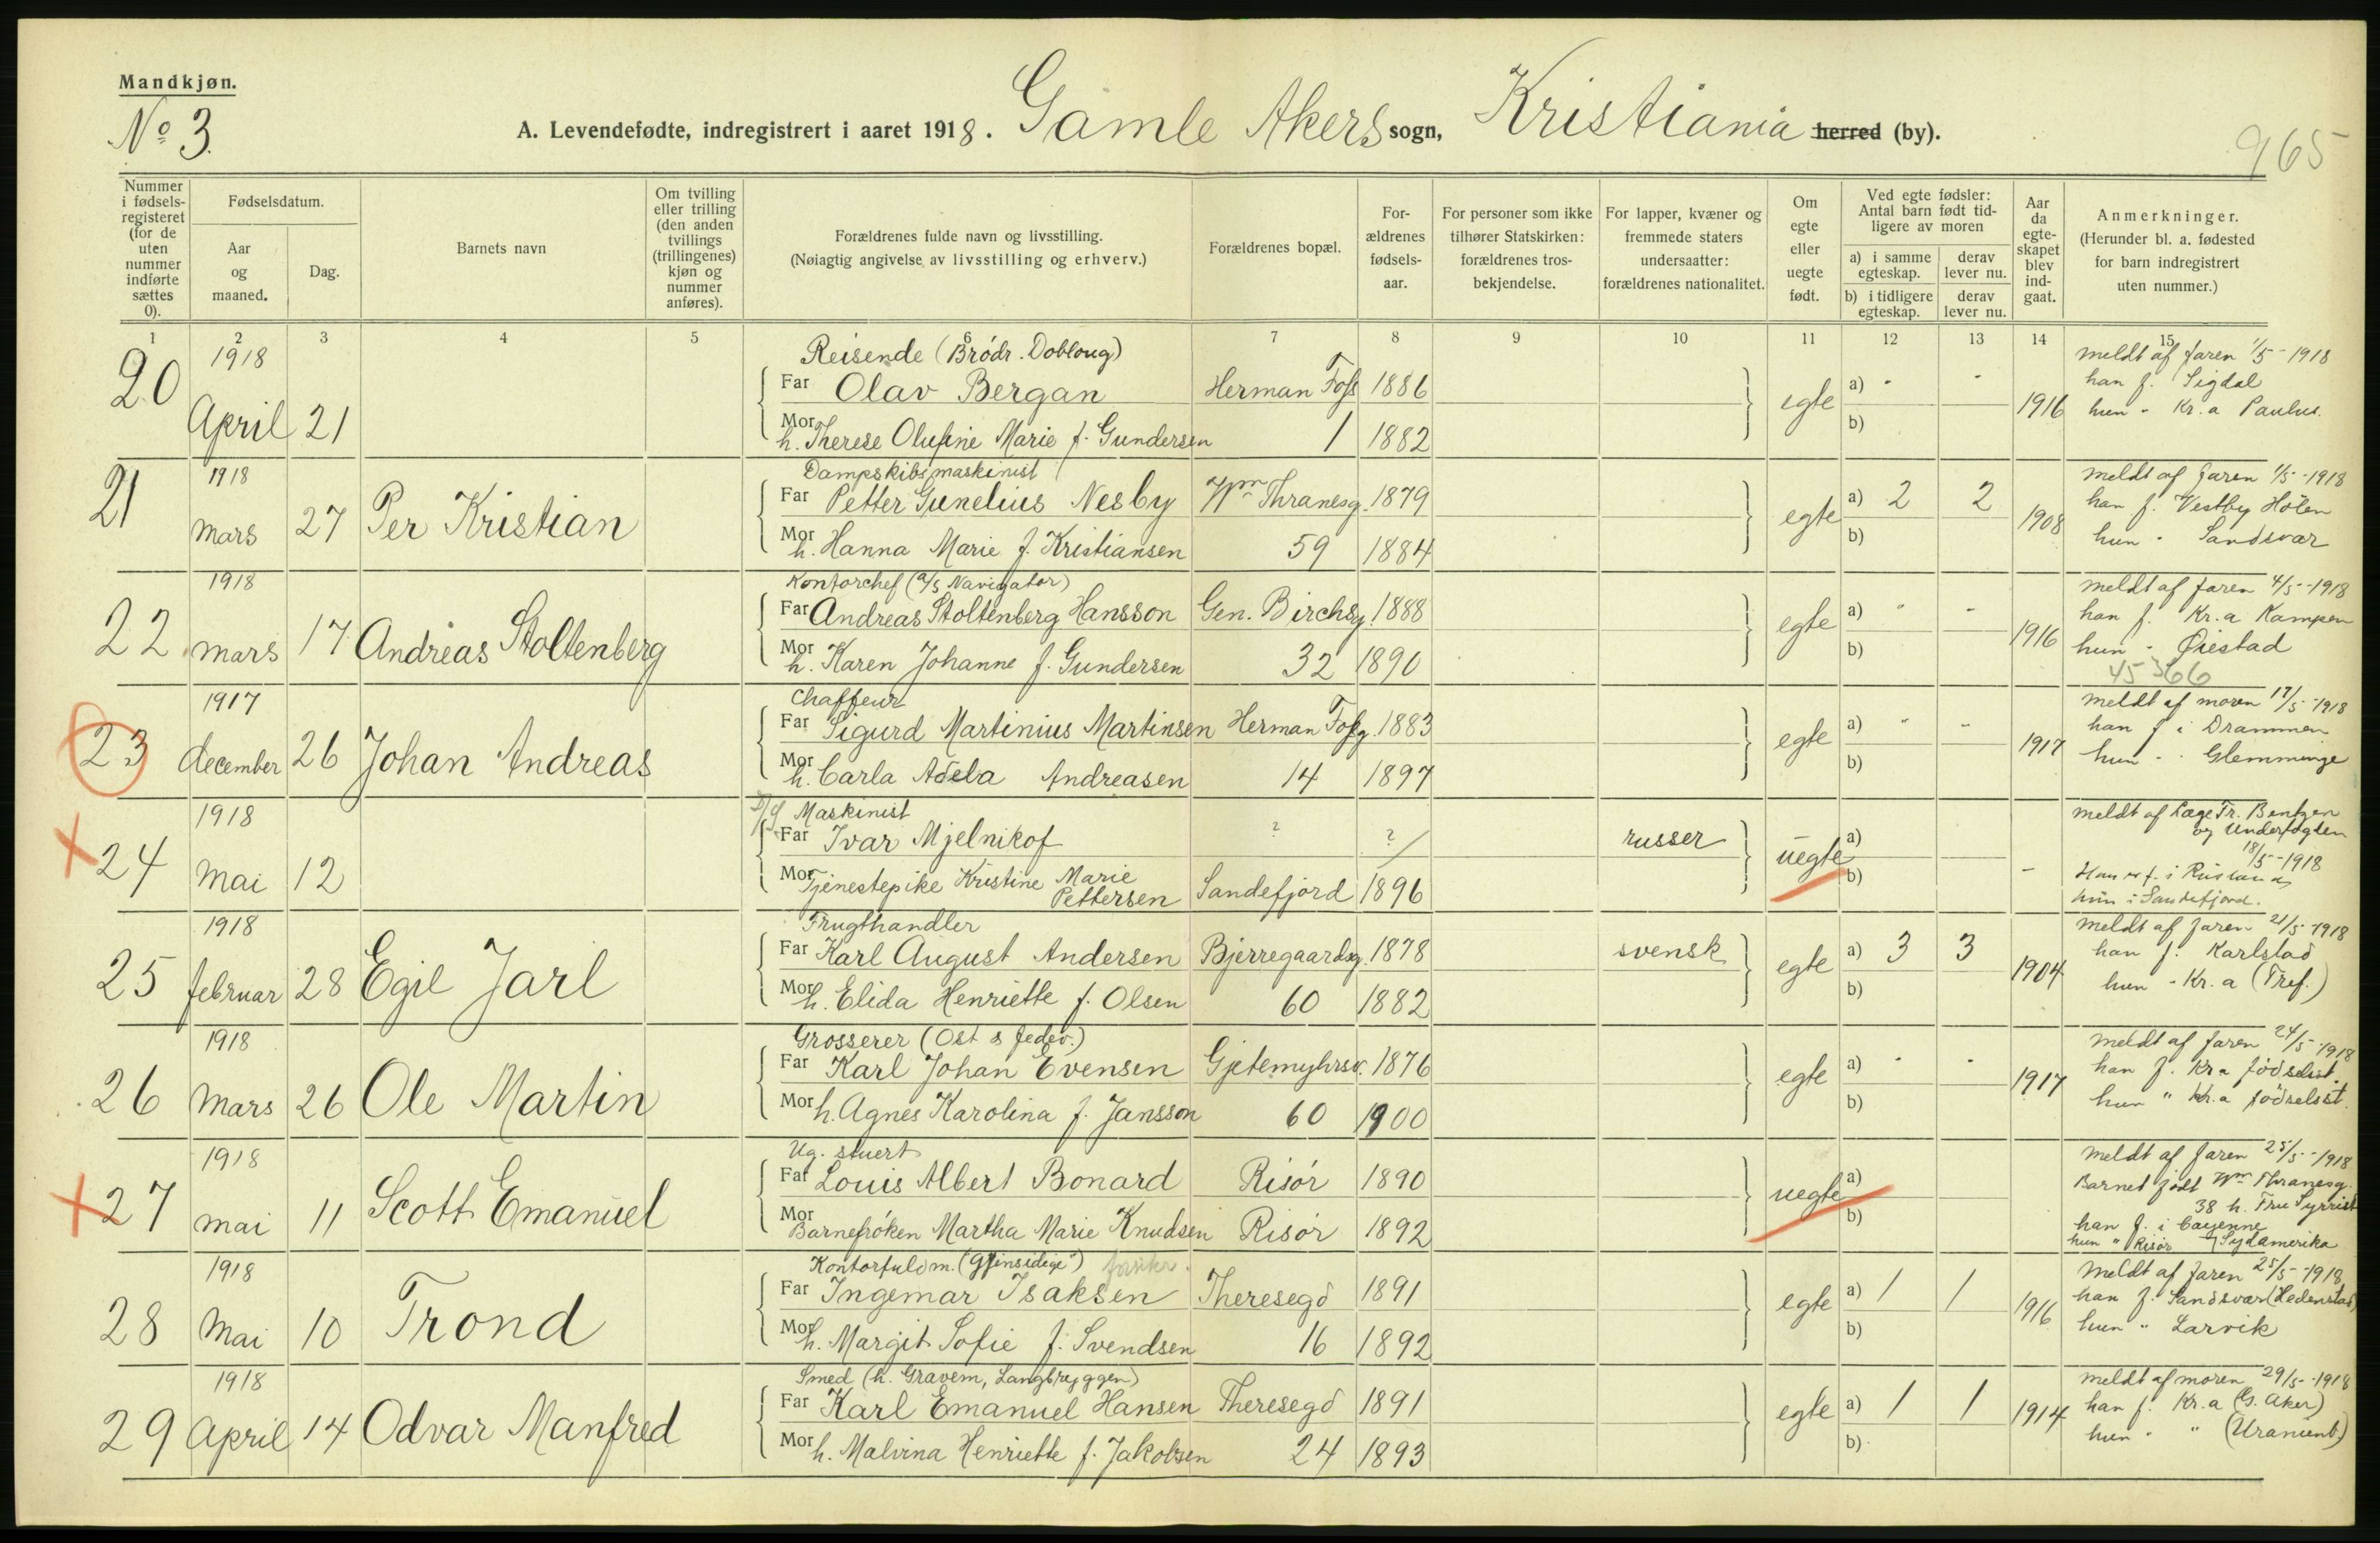 Mandkjøn.
No 3.
A. Levendefødte, indregistrert i aaret 1918. Gamle Akers sogn, Kristiania herred (by).
965
Nummer i fødsels-registeret (for de uten nummer indførte sættes 0).
Fødselsdatum.
Aar og maaned.
Dag.
Barnets navn
Om tvilling eller trilling (den anden tvillings (trillingenes) kjøn og nummer anføres).
Forældrenes fulde navn og livsstilling.
(Nøiagtig angivelse av livsstilling og erhverv.)
Forældrenes bopæl.
For-ældrenes fødsels-aar.
For personer som ikke tilhører Statskirken: forældrenes tros-bekjendelse.
For lapper, kvæner og fremmede staters undersaatter: forældrenes nationalitet.
Om egte eller uegte født.
Ved egte fødsler: Antal barn født tid-ligere av moren
a) i samme egteskap.
derav lever nu.
b) i tidligere egteskap.
derav lever nu.
Aar da egte-skapet blev ind-gaat.
Anmerkninger.
(Herunder bl. a. fødested for barn indregistrert uten nummer.)
1 2 3 4 5 6 7 8 9 10 11 12 13 14 15
20 1918 April 21
Reisende (Brødr. Dobloug)
Far Olav Bergan Herman Foss 1886
Mor h. Therese Olufine Marie f. Gundersen 1 1882
egte a) - - b) 1916
meldt af faren 1/5-1918
han f. Sigdal
hun - Kr.a Paulus.
21 1918 mars 27 Per Kristian
Dampskibsmaskinist
Far Petter Gunelius Nesby Wm Thranesg. 1879
Mor h. Hanna Marie f. Kristiansen 59 1884
egte a) 2 2 b) 1908
meldt af faren 1/5-1918
han f. Vestby Hølen
hun - Sandsvær
22 1918 mars 17 Andreas Stoltenberg
Kontorchef (A/S Navigator)
Far Andreas Stoltenberg Hansson Gen. Birchsg. 1888
Mor h. Karen Johanne f. Gundersen 32 1890
egte a) " - b) 1916
meldt af faren 4/5-1918
han f. Kr.a Kampen
hun - Øiestad
45366
23 1917 december 26 Johan Andreas
Chaffeur
Far Sigurd Martinius Martinsen Herman Fossg. 1883
Mor h. Carla Adela Andreasen 14 1897
egte a) " - b) 1917
meldt af moren 17/5-1918
han f i Drammen
hun - - Glemminge
24 1918 mai 12
Maskinist
Far Ivar Mjelnikof ? ? russer
Mor Tjenestepike Kristine Marie Pettersen Sandefjord 1896
uegte a) b) -
meldt af Læge Tr. Bentzen
og Underfogden
18/5-1918
Han er f. i Rusland
hun i Sandefjord.
25 1918 februar 28 Egil Jarl
Frugthandler
Far Karl August Andersen Bjerregaardsg. 1878 svensk
Mor h. Elida Henriette f. Olsen 60 1882
egte a) 3 3 b) 1904
meldt af faren 21/5-1918
han f. Karlstad
hun - Kr.a (Tref.)
26 1918 mars 26 Ole Martin
Grosserer (Ost & fedev.)
Far Karl Johan Evensen Gjetemyhrsv. 1876
Mor h. Agnes Karolina f. Jansson 60 1900
egte a) - - b) 1917
meldt af faren 24/5-1918
han f. Kr a fødselsst.
hun " Kr.a fødselsst.
27 1918 mai 11 Scott Emanuel
Ug. stuert
Far Louis Albert Bonard Risör 1890
Mor Barnefröken Martha Marie Knudsen Risör 1892
uegte a) b)
meldt af faren 25/5-1918
Barnet født Wm Thranesg.
38 h. Fru Syrrist
han f. i Cayenne
hun " Risör Sydamerika
28 1918 Mai 10 Trond
Kontorfuldm. ("Gjensidige")
Far Ingemar Isaksen Theresegd 1891
Mor h. Margit Sofie f. Svendsen 16 1892
egte a) 1 1 b) 1916
meldt af faren 25/5-1918
han f. Sandsvær (Hedenstad)
hun " Larvik
29 1918 April 14 Odvar Manfred
Smed (h. Gravem, Langbryggen)
Far Karl Emanuel Hansen Theresegd 1891
Mor h. Malvina Henriette f. Jakobsen 24 1893
egte a) 1 1 b) 1914
meldt af moren 29/5-1918
han f. Kr.a (G. Aker)
hun - " (Uranienb.)